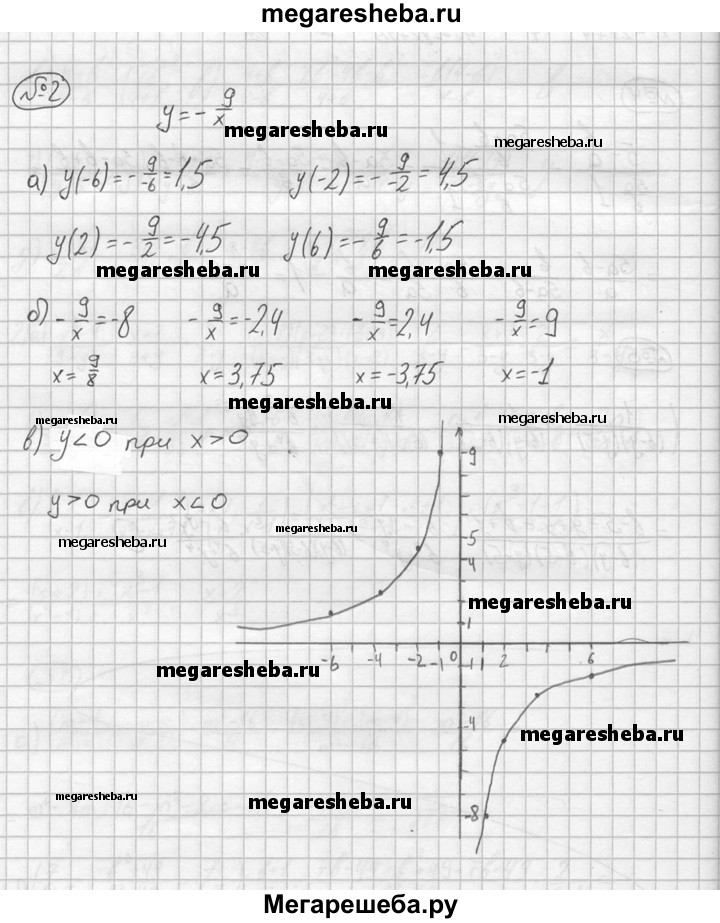 megaresheba.ru
№2
y = - 9/x
megaresheba.ru
megaresheba.ru
а) y(-6) = - 9/-6 = 1,5 y(-2) = - 9/-2 = 4,5
y(2) = - 9/2 = -4,5 y(6) = - 9/6 = -1,5
megaresheba.ru megaresheba.ru
б) - 9/x = -8 - 9/x = -2,4 - 9/x = 2,4 - 9/x = 9
x = 9/8 x = 3,75 x = -3,75 x = -1
megaresheba.ru
megaresheba.ru megaresheba.ru
в) y < 0 при x > 0
y > 0 при x < 0
megaresheba.ru
megaresheba.ru
9
5
4
megaresheba.ru
1
-6 -4 -2 -1 0 1 2 6
-1
megaresheba.ru
-4
megaresheba.ru
megaresheba.ru
megaresheba.ru
-8
Мегарешеба.ру